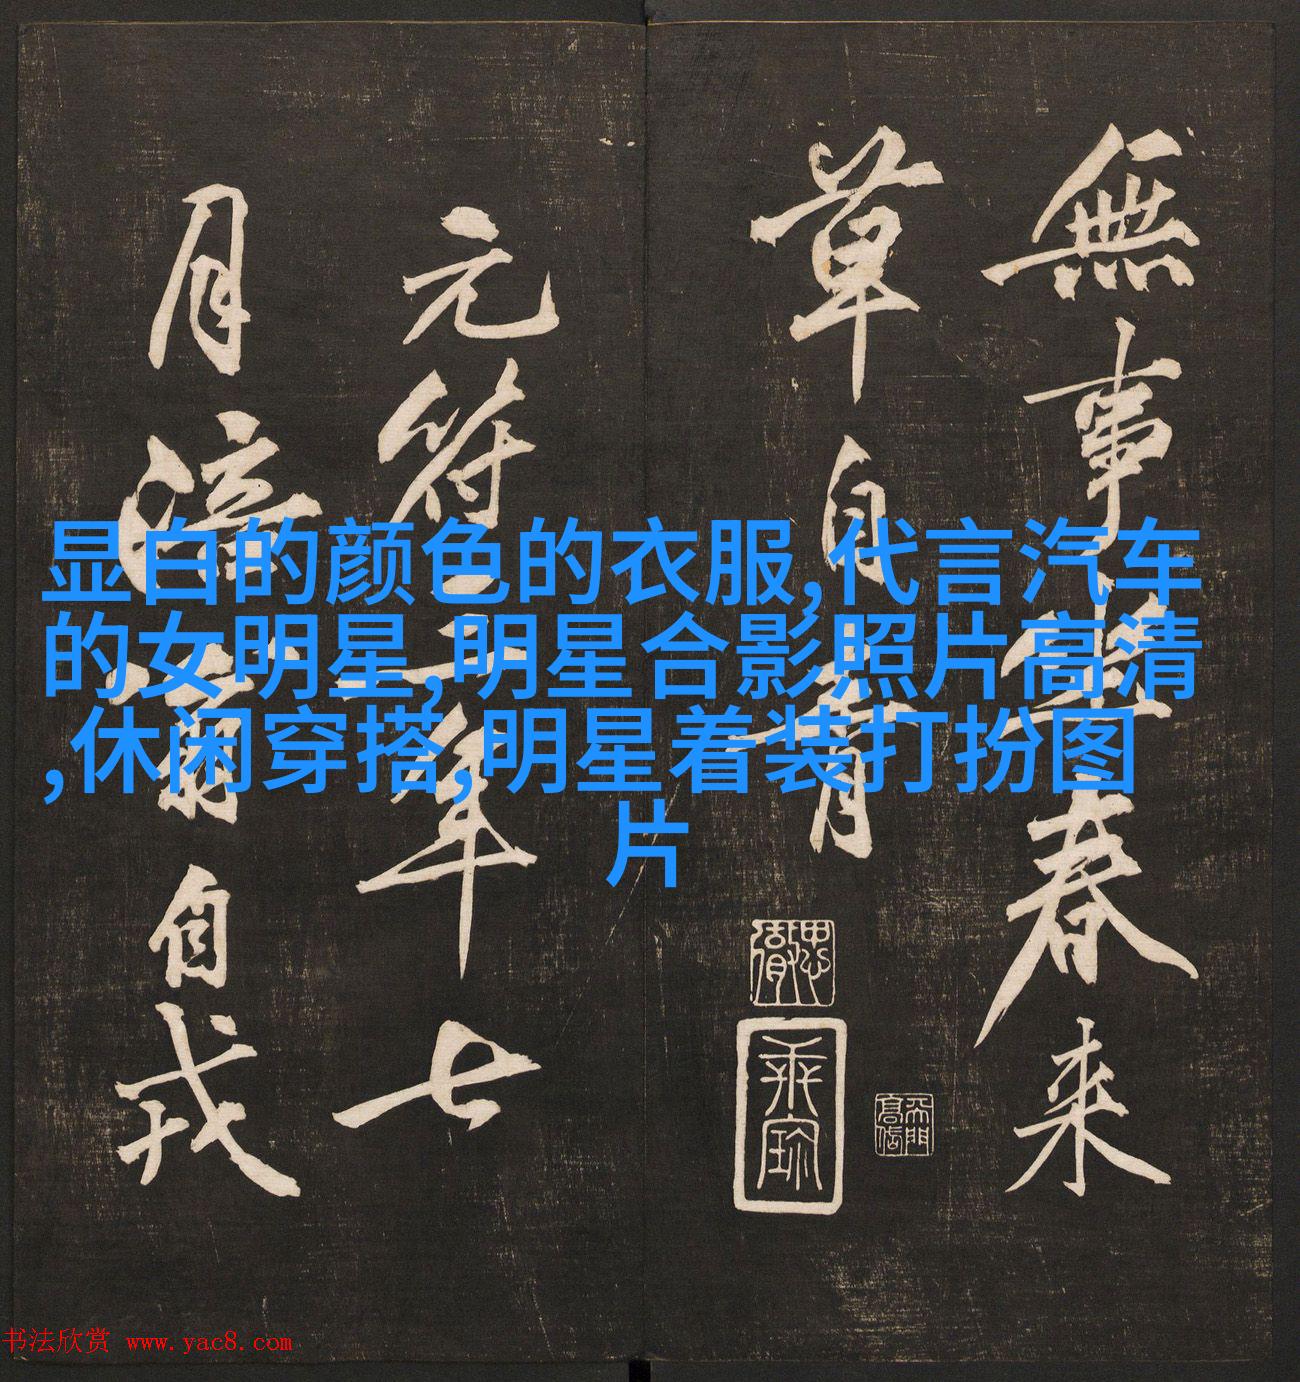 無事坐春来
草自青
元符三年七
月涪翁自戎
显白的颜色的衣服,代言汽车
的女明星,明星合影照片高清
,休闲穿搭,明星着装打扮图
片
书法欣赏 www.yac8.com